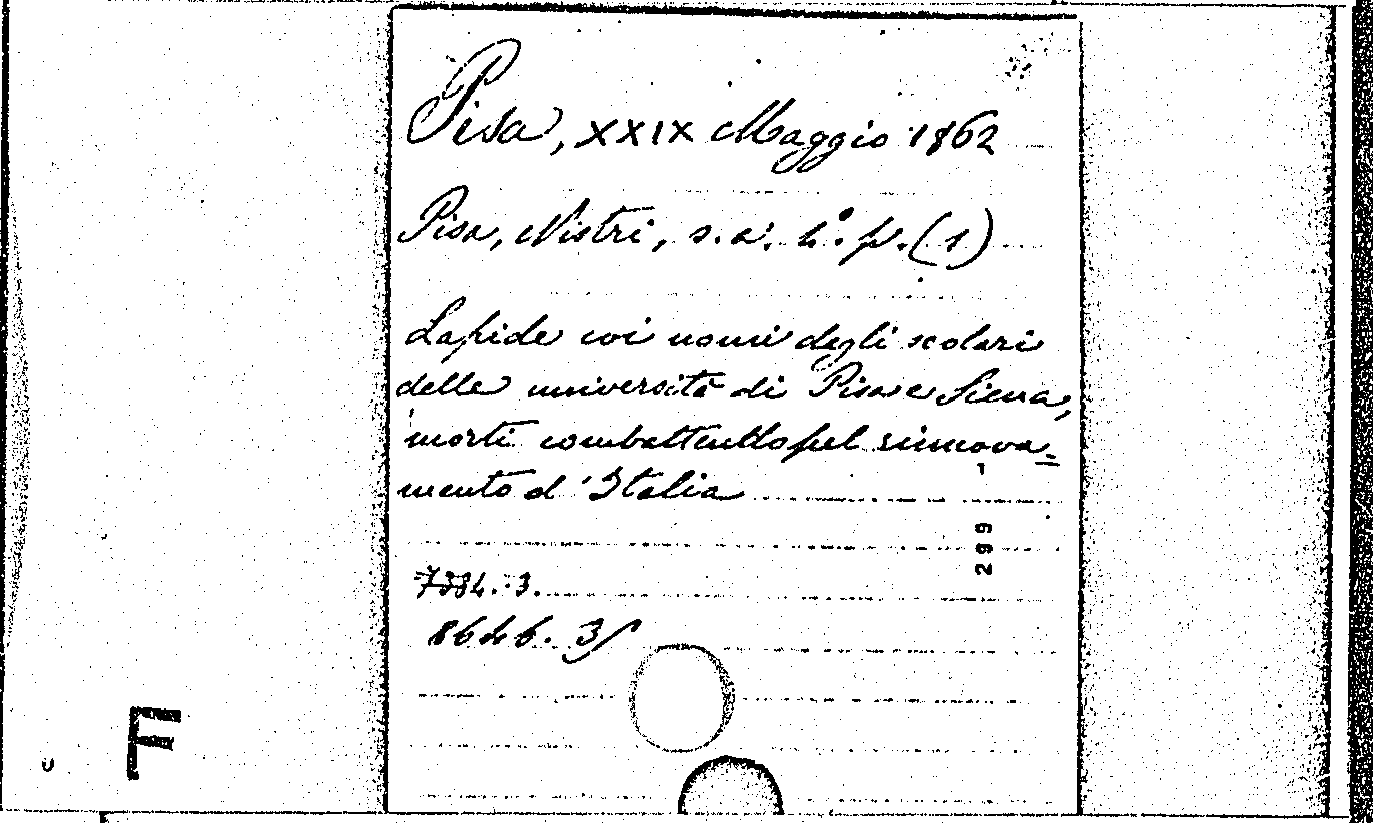 Pisa, XXIX Maggio 1862
Pisa, Nistri, s.a. 4.° p. (1)
Lapide coi nomi degli scolari
delle università di Pisa e Siena,
morti combattendo pel rinnova=
mento d'Italia
299
7384.3.
8646.35
F